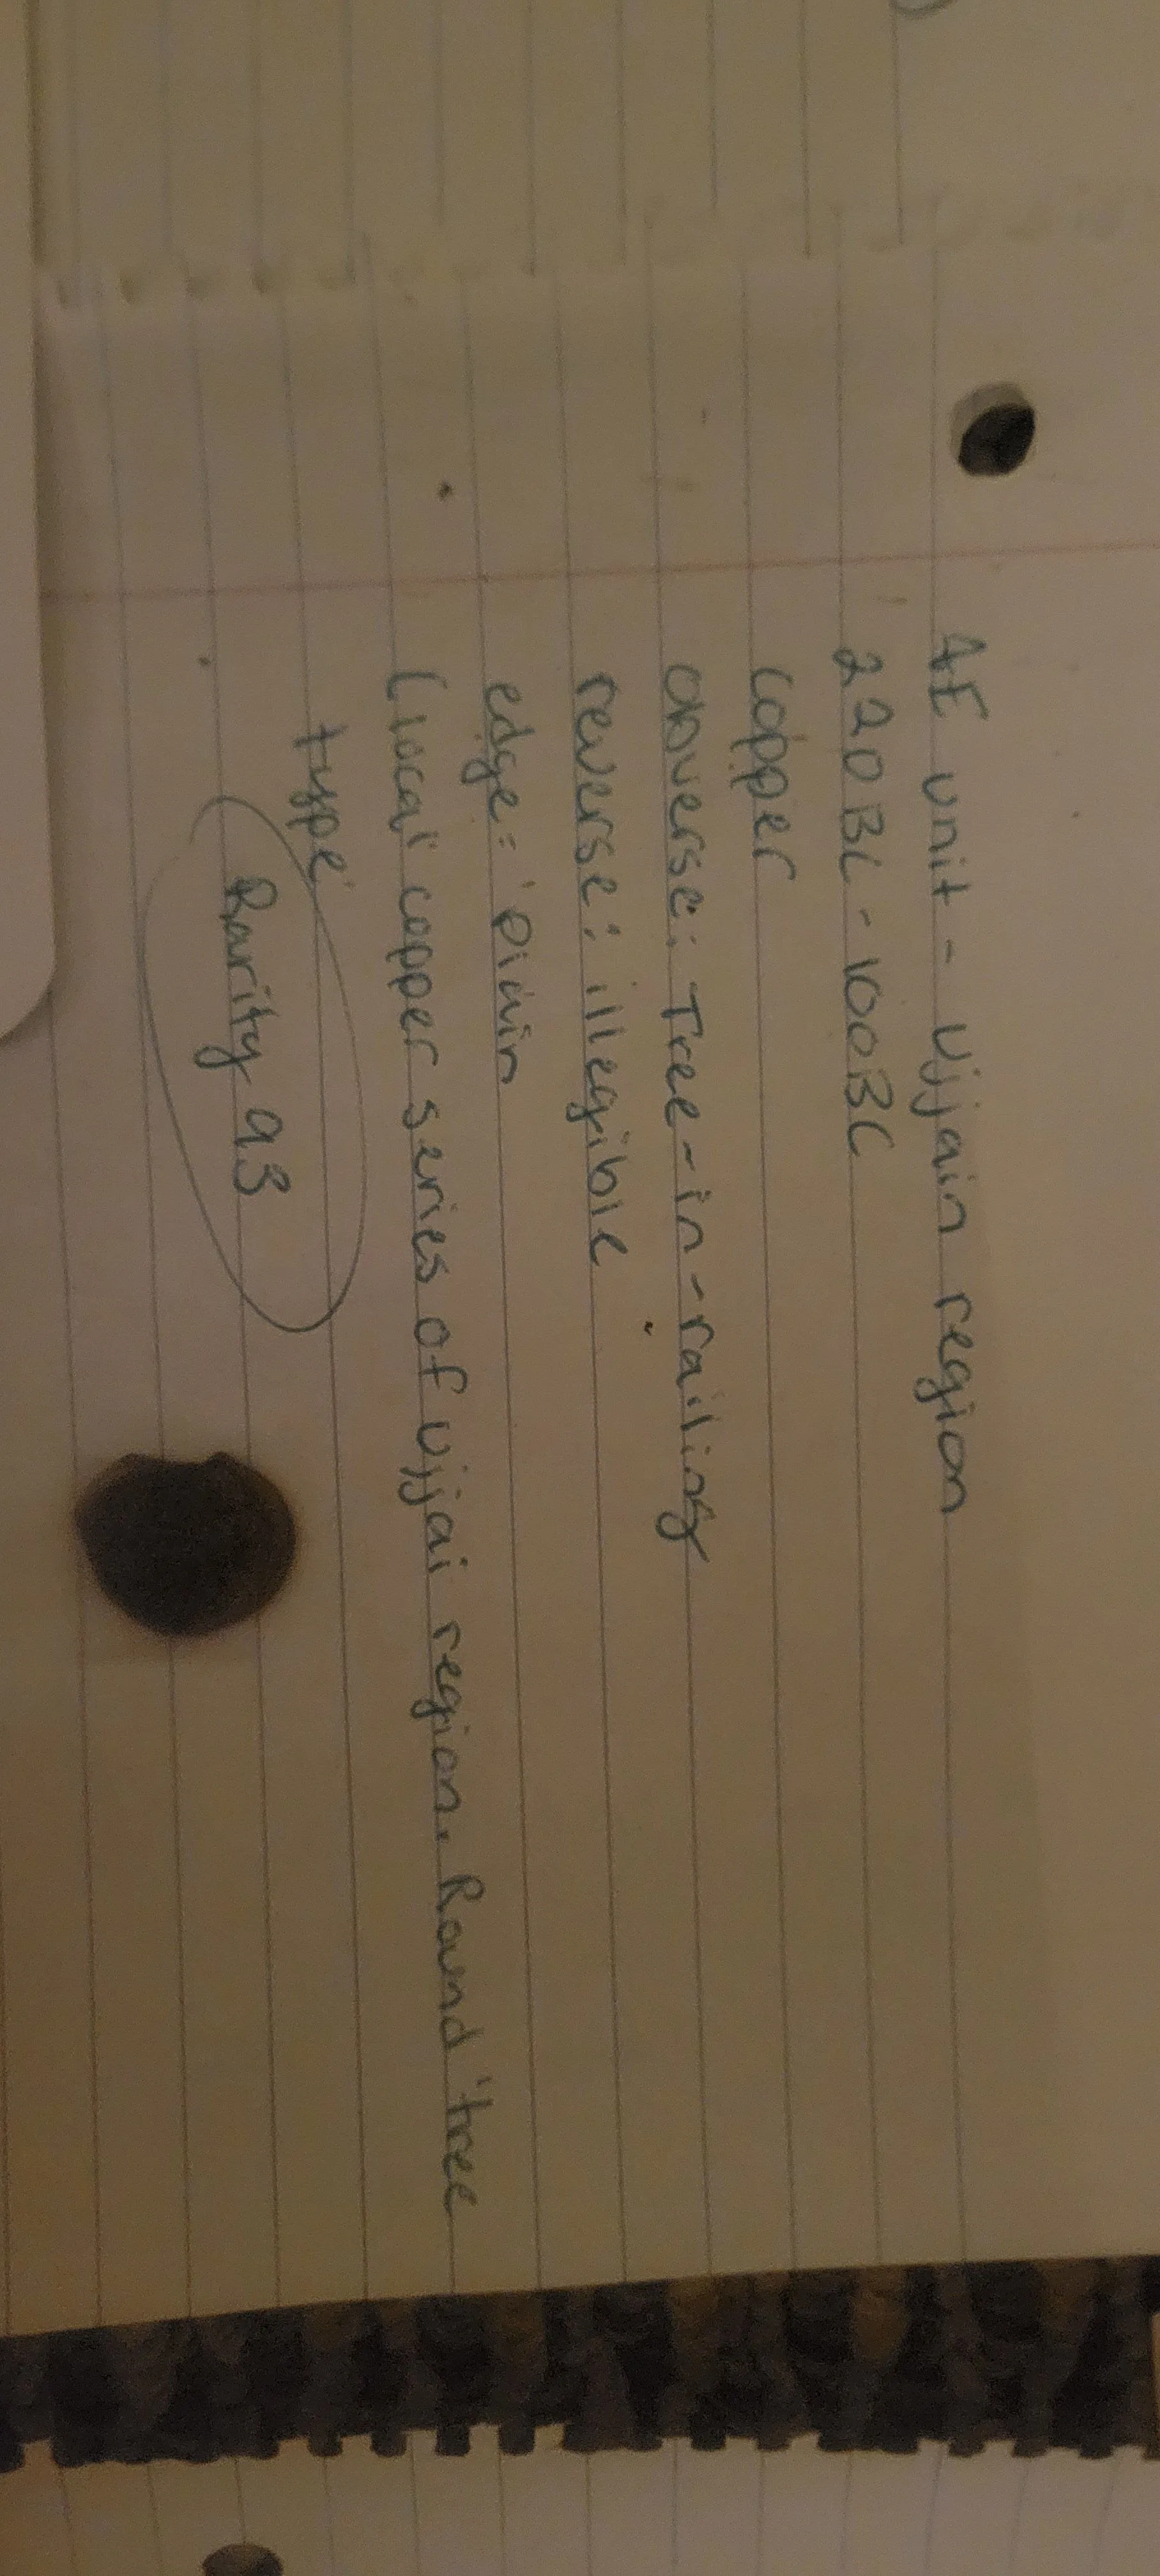 AE unit - Ujjain region
220BC - 100BC
copper
obverse: Tree-in-railing
reverse: illegible
edge: plain
(local copper series of Ujjai region. Round tree
type
Rarity 93